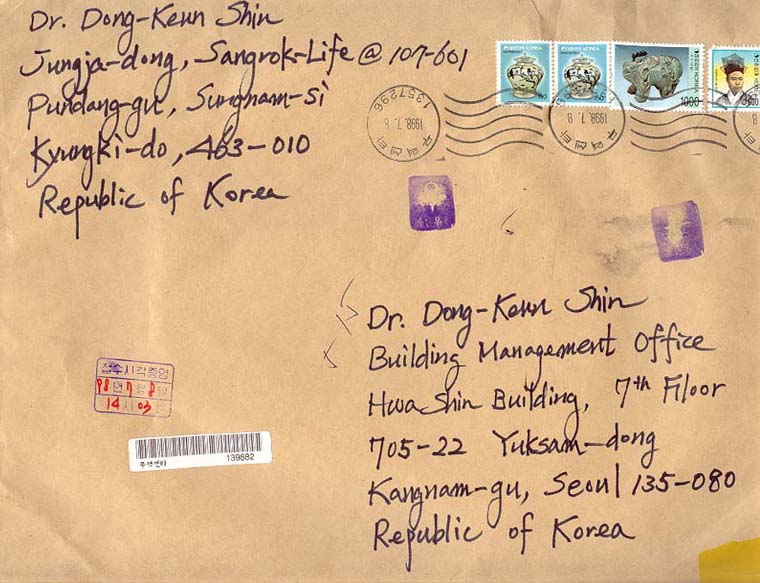 Dr. Dong-Keun Shin
Jungja-dong, Sangrok-Life @ 107-601
Pundang-gu, Sungnam-si
Kyungki-do, 463-010
Republic of Korea
1357296
1998.7.8
우역센타
1998.7.8
우역센타
1000
Dr. Dong-Keun Shin
Building Management Office
Hwa Shin Building, 7th Floor
705-22 Yuksam-dong
Kangnam-gu, Seoul 135-080
Republic of Korea
접수시각증명
98년 7월 8일
14시 03
139882